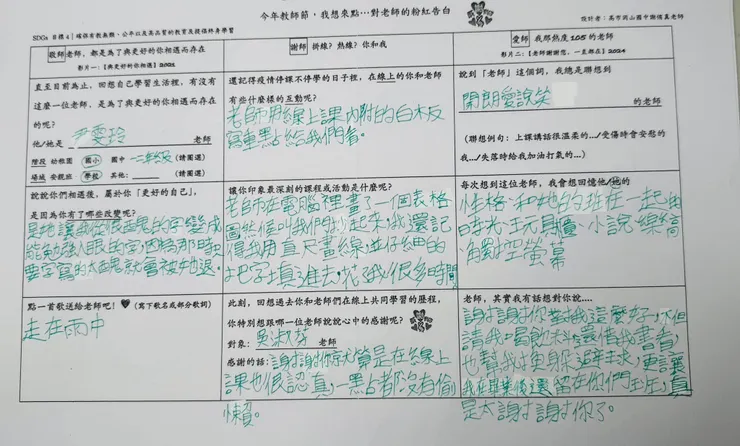 今年教師節，我想來點…對老師的粉紅告白
SDGs 目標 4｜確保有教無類、公平以及高品質的教育及提倡終身學習
設計者：高市岡山國中謝倩真老師
敬師 老師，都是為了與更好的你相遇而存在
影片一：【與更好的你相遇】2021
直至目前為止，回想自己學習生活裡，有沒有
這麼一位老師，是為了與更好的你相遇而存在
的呢？
他/她是 尹雯玲 老師
階段 幼稚園 國小 國中 一二年級 (請圈選)
場域 安親班 學校 其他： (請圈選)
說說你們相遇後，屬於你「更好的自己」，
是因為你有了哪些改變呢？
是她讓我從很醜的字變成
能勉強入眼的字，因為那時只
要字寫的太醜就會被她退。
點一首歌送給老師吧！♥ (寫下歌名或部分歌詞)
走在雨中
謝師 掛線？熱線？你和我
還記得疫情停課不停學的日子裡，在線上的你和老師
有些什麼樣的互動呢？
老師用線上課內附的白板
寫重點給我們看。
讓你印象最深刻的課程或活動是什麼呢？
老師在電腦裡畫了一個表格
圖然後叫我們抄起來，我還記
得我用直尺畫線，並仔細的
把字填進去，花我很多時間
此刻，回想過去你和老師們在線上共同學習的歷程，
你特別想跟哪一位老師說說心中的感謝呢？
對象： 吳淑芬 老師
感謝的話：謝謝你就算是在線上
課也很認真，一點都沒有偷
懶。
愛師 我那熱度 105 的老師
影片二：【老師謝謝您，一直都在】2024
說到「老師」這個詞，我總是聯想到
開朗愛說笑
的老師
(聯想例句：上課講話很溫柔的…/受傷時會安慰的
我…/失落時給我加油打氣的…)
每次想到這位老師，我會想回憶他/她的
性格、和她的班在一起的
時光、玩具櫃、小說、綠縞
、觸控螢幕
老師，其實我有話想對你說….
謝謝你對我這麼好，不但
請我喝飲料，還借我書看，
也幫我
我在畢業後還留在你們
是太謝謝你了。